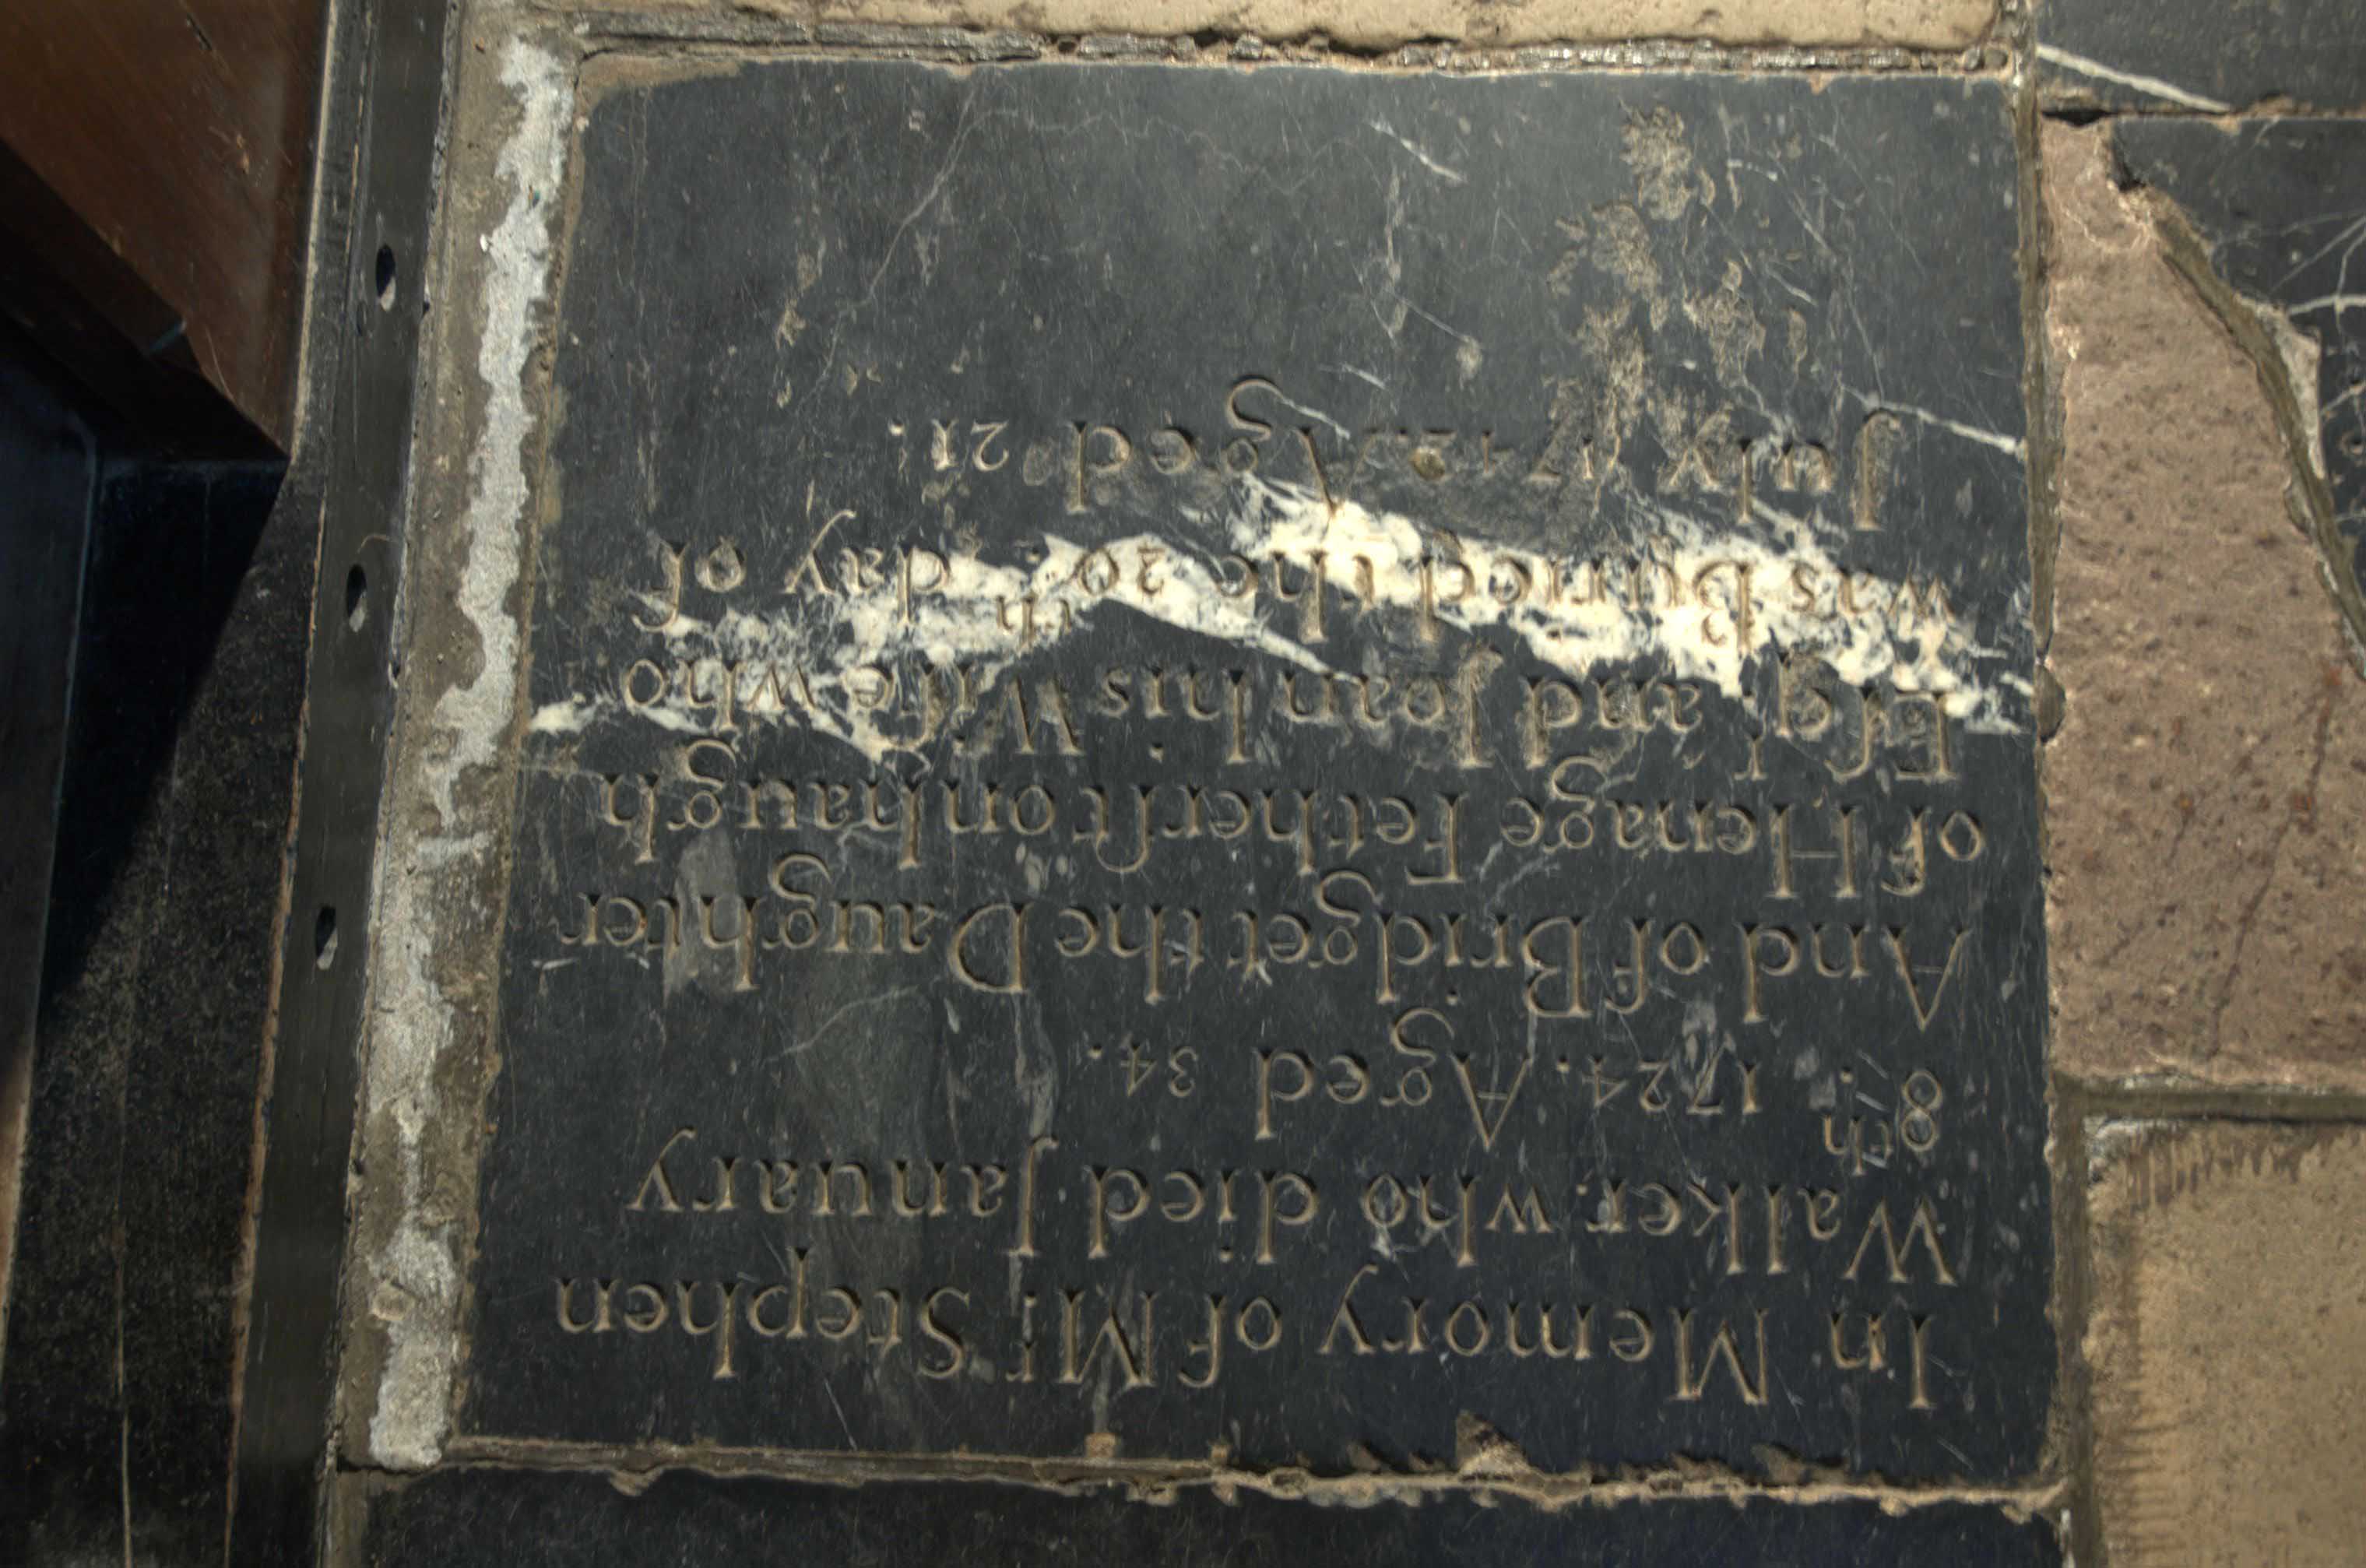 In Memory of Mr. Stephen
Walker, who died January
8th. 1724. Aged 34.
And of Bridget the Daughter
of Henage Fetherſtonhaugh
Eſqr. and Joan his Wife who
was Buried the 20th. day of
July Aged 21.